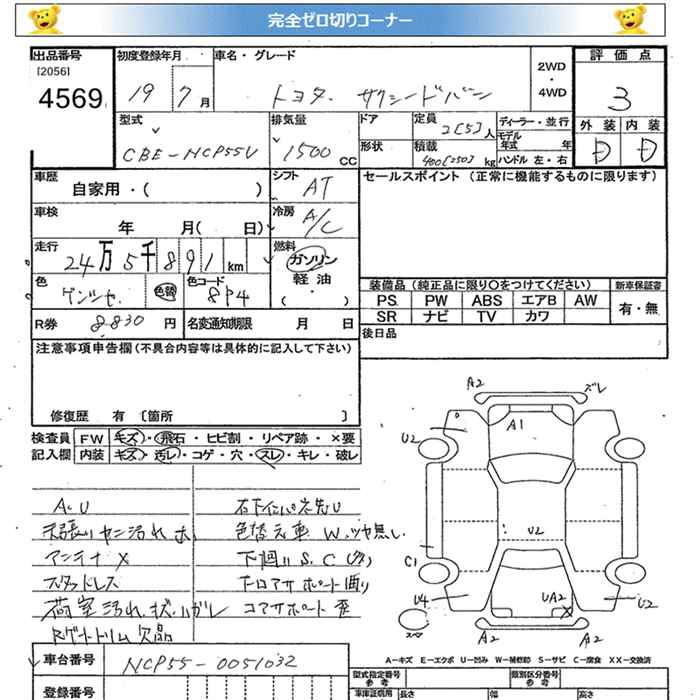 完全ゼロ切りコーナー
出品番号 初度登録年月 車名・グレード 2WD・4WD 評価点
[2056]
4569 19 7月 トヨタ サクシードバン 3
型式 排気量 ドア 定員 2[5]人 ディーラー・並行 外装 内装
モデル年式 年
CBE-NCP55V 1500CC 形状 積載 400[250]kg ハンドル 左・右 D D
車歴 自家用・( ) シフト AT セールスポイント (正常に機能するものに限ります)
車検 年 月( 日) 冷房 A/C
走行 24万5千891km 燃料 ガソリン 軽油・( )
色 色替 色コード 8P4
装備品(純正品に限り○をつけてください) 新車保証書
PS PW ABS エアB AW 有・無
SR ナビ TV カワ
R券 8830円 名変通知期限 月 日 後日品
注意事項申告欄(不具合内容等は具体的に記入して下さい)
修復歴 有〔箇所 〕
検査員 FW キズ・飛石・ヒビ割・リペア跡・×要
記入欄 内装 キズ・汚レ・コゲ・穴・スレ・キレ・破レ
A.U
天張りヤニ汚れ
アンテナ X
スタッドレス
荷室汚れ
Rゲートトリム欠品
色替え車 W.ツヤ無し
下廻り S.C
コアサポート 歪
A2 ズレ
A1
U2
U2
C1
U4 UA2 X U2
スペ
A2 A2
A-キズ E-エクボ U-凹み W-補修跡 S-サビ C-腐食 XX-交換済
車台番号 NCP55-0051032
型式指定番号 参考 類別区分番号 参考
登録番号 車庫証明用 長さ 幅 高さ